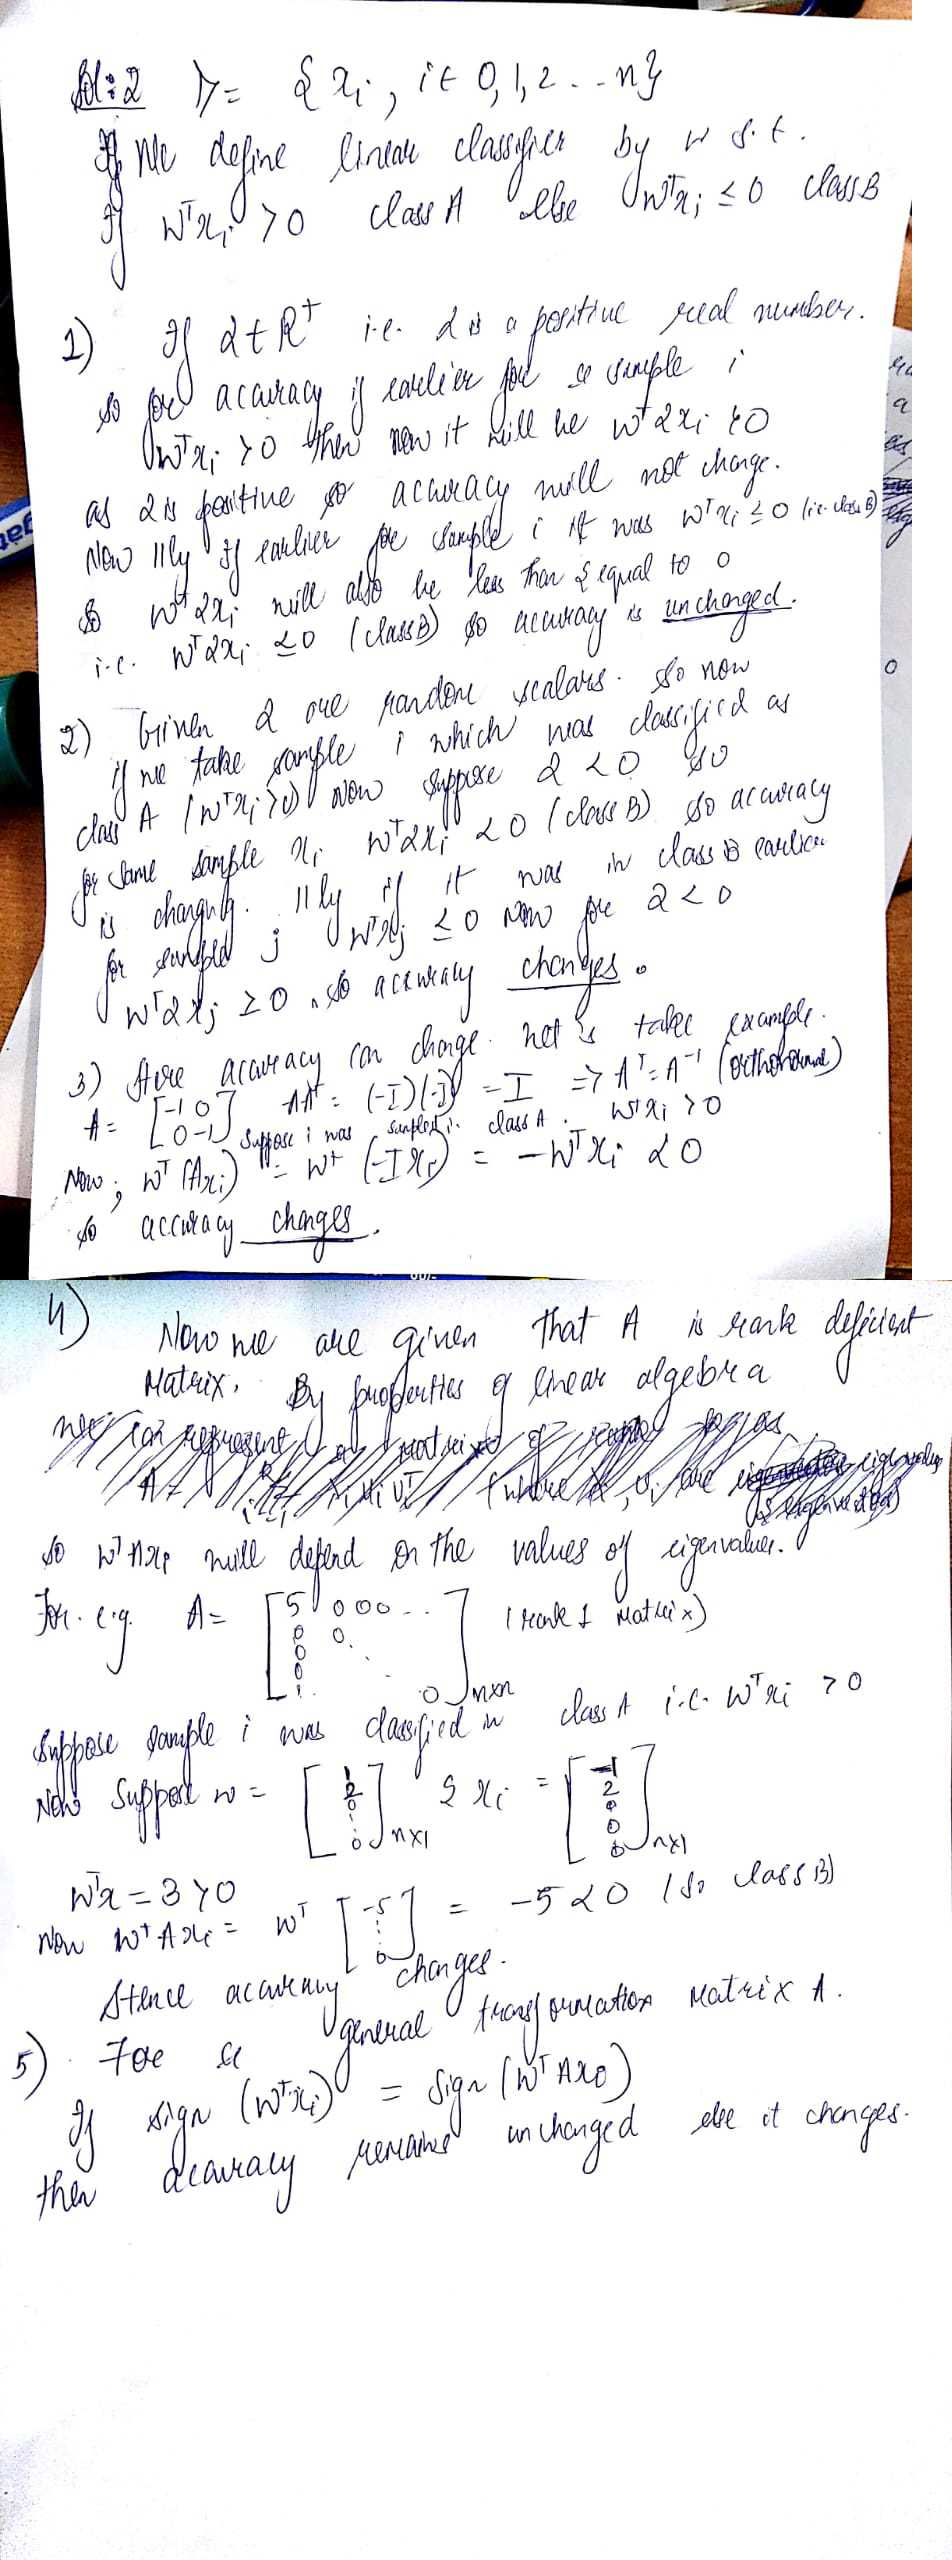 Sol:2 D = { xi, i ∈ 0,1,2 . . n}
If We define linear classifier by w s.t.
If wᵀxi > 0 class A else wᵀxi ≤ 0 class B
1) If α ∈ R⁺ i.e. α is a positive real number.
so for accuracy if earlier for a sample i
wᵀxi > 0 then now it will be wᵀαxi > 0
as α is positive so accuracy will not change.
Now llly if earlier for sample i it was wᵀxi ≤ 0 (i.e. class B)
so wᵀαxi will also be less than & equal to 0
i.e. wᵀαxi ≤ 0 (class B) so accuracy is unchanged.
2) Given α are random scalars. So now
if we take sample i which was classified as
class A (wᵀxi > 0) Now suppose α < 0 so
for same sample xi wᵀαxi < 0 (class B) so accuracy
is changing. llly if it was in class B earlier
for sample j wᵀxj ≤ 0 Now for α < 0
wᵀαxj ≥ 0 , so accuracy changes.
3) Here accuracy can change. Let's take example.
A = [-1 0 0 -1] AAᵀ = (-I)(-I) = I => Aᵀ = A⁻¹ (orthonormal)
Suppose i was sampled in class A . wᵀxi > 0
Now, wᵀ(Axi) = wᵀ (-Ixi) = -wᵀxi < 0
so accuracy changes.
4) Now we are given that A is rank deficient
Matrix. By properties of linear algebra
so wᵀAxi will depend on the values of eigenvalues.
For e.g. A = [5 0 0 0 .. 0 0. 0 0 0]nxn (rank 1 Matrix)
Suppose sample i was classified in class A i.e. wᵀxi > 0
Now Suppose w = [1 2 0 : 0]nx1 & xi = [-1 2 0 0 0]nx1
wᵀx = 3 > 0
Now wᵀAxi = wᵀ [-5 : 0] = -5 < 0 (So class B)
Hence accuracy changes.
5) For a general transformation Matrix A.
If sign (wᵀxi) = sign (wᵀAxi)
then accuracy remains unchanged else it changes.